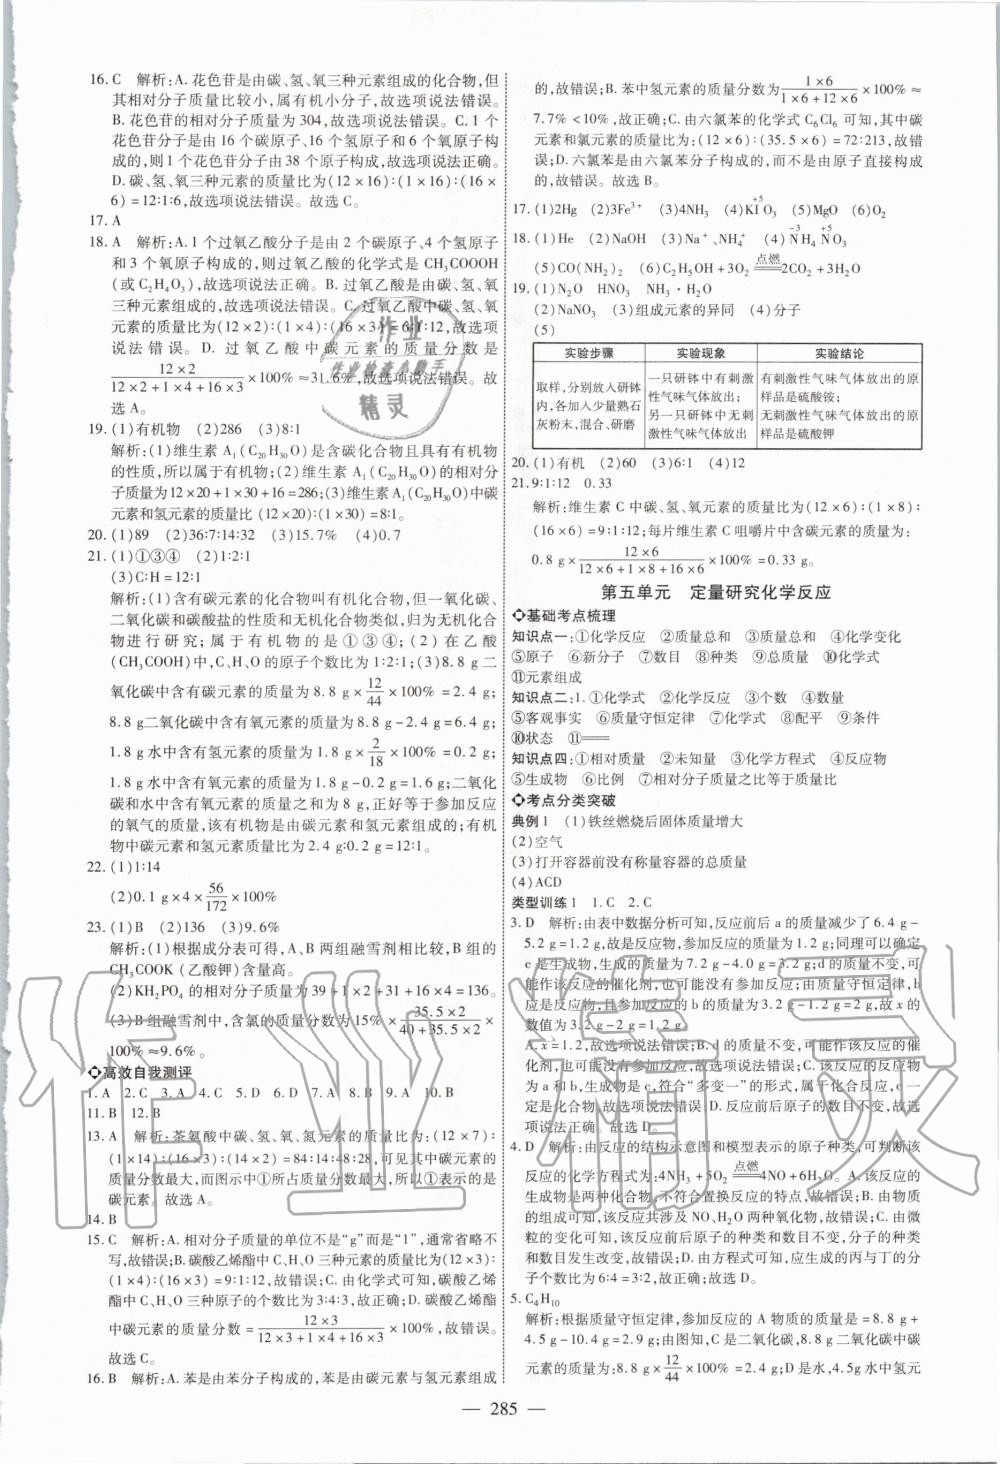 16. C　解析:A. 花色苷是由碳、氢、氧三种元素组成的化合物,但
其相对分子质量比较小,属有机小分子,故选项说法错误。
B. 花色苷的相对分子质量为 304,故选项说法错误。C. 1 个
花色苷分子由 16 个碳原子、16 个氢原子和 6 个氧原子构
成的,则 1 个花色苷分子由 38 个原子构成,故选项说法正确。
D. 碳、氢、氧三种元素的质量比为(12×16)∶(1×16)∶(16×
6)=12∶1∶6,故选项说法错误。故选 C。
17. A
18. A　解析:A. 1 个过氧乙酸分子是由 2 个碳原子、4 个氢原子
和 3 个氧原子构成的,则过氧乙酸的化学式是 CH₃COOOH
(或 C₂H₄O₃),故选项说法正确。B. 过氧乙酸是由碳、氢、氧
三种元素组成的,故选项说法错误。C. 过氧乙酸中碳、氢、
氧元素的质量比为(12×2)∶(1×4)∶(16×3)=6∶1∶12,故选项
说法错误。D. 过氧乙酸中碳元素的质量分数是
12×2/(12×2+1×4+16×3)×100%≈31.6%,故选项说法错误。故
选 A。
19. (1)有机物　(2)286　(3)8∶1
解析:(1)维生素 A₁(C₂₀H₃₀O)是含碳化合物且具有有机物
的性质,所以属于有机物;(2)维生素 A₁(C₂₀H₃₀O)的相对分
子质量为 12×20+1×30+16=286;(3)维生素 A₁(C₂₀H₃₀O)中碳
元素和氢元素的质量比(12×20)∶(1×30)=8∶1。
20. (1)89　(2)36∶7∶14∶32　(3)15.7%　(4)0.7
21. (1)①③④　(2)1∶2∶1
(3)C∶H=12∶1
解析:(1)含有碳元素的化合物叫有机化合物,但一氧化碳、
二氧化碳和碳酸盐的性质和无机物类似,归为无机化合
物进行研究;属于有机物的是①③④;(2)在乙酸
(CH₃COOH)中,C、H、O 的原子个数比为 1∶2∶1;(3)8.8 g 二
氧化碳中含有碳元素的质量为 8.8 g×12/44×100%=2.4 g;
8.8 g二氧化碳中含有氧元素的质量为 8.8 g-2.4 g=6.4 g;
1.8 g水中含有氢元素的质量为 1.8 g×2/18×100%=0.2 g;
1.8 g水中含有氧元素的质量为 1.8 g-0.2 g=1.6 g;二氧化
碳和水中含有氧元素的质量之和为 8 g,正好等于参加反应
的氧气的质量,该有机物是由碳元素和氢元素组成的;有机
物中碳元素和氢元素质量比为 2.4 g∶0.2 g=12∶1。
22. (1)1∶14
(2)0.1 g×4×56/172×100%
23. (1)B　(2)136　(3)9.6%
解析:(1)根据成分表可得,A、B 两组融雪剂相比较,B 组的
CH₃COOK(乙酸钾)含量高。
(2)KH₂PO₄ 的相对分子质量为 39+1×2+31+16×4=136。
(3)B 组融雪剂中,含氯的质量分数为 15%×35.5×2/(40+35.5×2)×
100%≈9.6%。
高效自我测评
1. A　2. C　3. A　4. C　5. D　6. D　7. A　8. B　9. A　10. B
11. B　12. B
13. A　解析:茶氨酸中碳、氢、氧、氮元素的质量比为:(12×7)∶
(1×14)∶(16×3)∶(14×2)=84∶14∶48∶28,可见其中碳元素的
质量分数最大,而图示中①所占质量分数最大,所以①表示的是
碳元素。故选 A。
14. B
15. C　解析:A. 相对分子质量的单位不是“g”而是“1”,通常省略不
写,故错误;B. 碳酸乙烯酯中 C、H、O 三种元素的质量比为(12×3)∶
(1×4)∶(16×3)=9∶1∶12,故错误;C. 由化学式可知,碳酸乙烯
酯中 C、H、O 三种原子的个数比为 3∶4∶3,故正确;D. 碳酸乙烯酯
中碳元素的质量分数=12×3/(12×3+1×4+16×3)×100%,故错误。
故选 C。
16. B　解析:A. 苯是由苯分子构成的,苯是由碳元素与氢元素组成
的,故错误;B. 苯中氢元素的质量分数为1×6/(1×6+12×6)×100%≈
7.7%<10%,故正确;C. 由六氯苯的化学式 C₆Cl₆ 可知,其中碳
元素和氯元素的质量比为(12×6)∶(35.5×6)=72∶213,故错
误;D. 六氯苯是由六氯苯分子构成的,而不是由原子直接构成
的,故错误。故选 B。
17. (1)2Hg　(2)3Fe³⁺　(3)4NH₃　(4)KI⁺⁵O₃　(5)MgO　(6)O₂
18. (1)He　(2)NaOH　(3)Na⁺、NH₄⁺　(4)N⁻³H₄N⁺⁵O₃
(5)CO(NH₂)₂　(6)C₂H₅OH+3O₂ 点燃══ 2CO₂+3H₂O
19. (1)N₂O　HNO₃　NH₃·H₂O
(2)NaNO₃　(3)组成元素的异同　(4)分子
(5)
实验步骤　实验现象　实验结论
取样,分别放入研钵内,各加入少量熟石灰粉末,混合、研磨　一只研钵中有刺激性气味气体放出;另一只研钵中无刺激性气味气体放出　有刺激性气味气体放出的原样品是硫酸铵;无刺激性气味气体放出的原样品是硫酸钾
20. (1)有机　(2)60　(3)6∶1　(4)12
21. 9∶1∶12　0.33
解析:维生素 C 中碳、氢、氧元素的质量比为(12×6)∶(1×8)∶
(16×6)=9∶1∶12;每片维生素 C 咀嚼片中含碳元素的质量为
0.8 g×12×6/(12×6+1×8+16×6)×100%=0.33 g。
第五单元　定量研究化学反应
基础考点梳理
知识点一:①化学反应　②质量总和　③质量总和　④化学变化
⑤原子　⑥新分子　⑦数目　⑧种类　⑨总质量　⑩化学式
⑪元素组成
知识点二:1. ①化学式　②化学反应　③个数　④数量
⑤客观事实　⑥质量守恒定律　⑦化学式　⑧配平　⑨条件
⑩状态　⑪══
知识点四:①相对质量　②未知量　③化学方程式　④反应物
⑤生成物　⑥比例　⑦相对分子质量之比等于质量比
考点分类突破
典例 1　(1)铁丝燃烧后固体质量增大
(2)空气
(3)打开容器前没有称量容器的总质量
(4)ACD
类型训练 1　1. C　2. C
3. D　解析:由表中数据分析可知,反应前后 a 的质量减少了 6.4 g-
5.2 g=1.2 g,故是反应物,参加反应的质量为 1.2 g;同理可以确定
c 是生成物,生成的质量为 7.2 g-4.0 g=3.2 g;d 的质量不变,可
能作该反应的催化剂,也可能没有参加反应;由质量守恒定律,b
应是反应物,且参加反应的 b 的质量为 3.2 g-1.2 g=2 g,故 x 的
数值为 3.2 g-2 g=1.2 g。
A. x=1.2,故选项说法错误;B. d 的质量不变,可能作该反应的催化
剂,也可能没有参加反应,故选项说法错误;C. 该反应的反应物
为 a 和 b,生成物是 c,符合“多变一”的形式,属于化合反应,c 一
定是化合物,故选项说法错误;D. 反应前后原子的数目不变,故选
项说法正确。故选 D。
4. D　解析:由反应的结构示意图和模型表示的原子种类,可判断该
反应的化学方程式为:4NH₃+5O₂ 点燃══ 4NO+6H₂O。A. 该反应的
生成物是两种化合物,不符合置换反应的特点,故错误;B. 由物质
的组成可知,该反应共涉及 NO、H₂O 两种氧化物,故错误;C. 由微
粒的变化可知,反应前后原子的种类与数目不变,分子的种类
和数目发生改变,故错误;D. 由方程式可知,应生成的丙与丁的分
子个数比为 6∶4=3∶2,故正确。故选 D。
5. C₄H₁₀
解析:根据质量守恒定律,参加反应的 A 物质的质量=8.8 g+
4.5 g-10.4 g=2.9 g;由图知,C 是二氧化碳,8.8 g 二氧化碳中碳
元素的质量为:8.8 g×12/44×100%=2.4 g;D 是水,4.5g水中氢元
— 285 —
作业
作业检查小助手
精灵
作业精灵